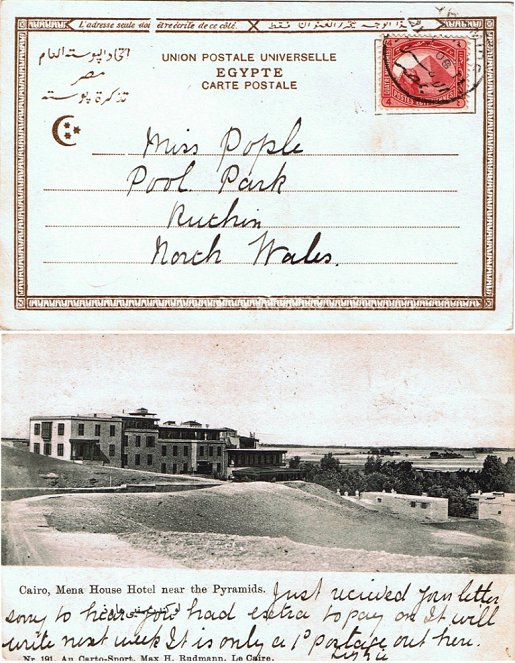 L'adresse seule doit être écrite de ce côté. هذا الوجه يحرر العنوان فقط
اتحاد البوستة العام
مصر
تذكرة بوستة
UNION POSTALE UNIVERSELLE
EGYPTE
CARTE POSTALE
4 4
Miss Pople
Pool Park
Ruthin
North Wales.
Cairo, Mena House Hotel near the Pyramids.
Just recieved your letter
sorry to hear you had extra to pay on it will
write next week It is only a 1d postage out here.
Nr. 191. Au Carto-Sport, Max H. Rudmann, Le Caire.